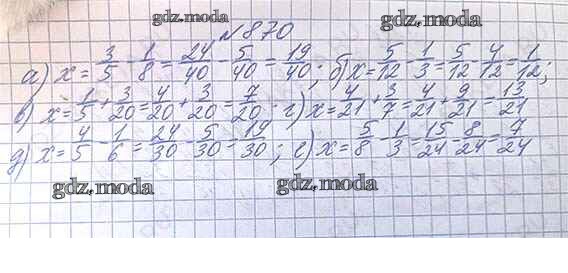 gdz.moda gdz.moda
№870
а) x = 3/5 - 1/8 = 24/40 - 5/40 = 19/40; б) x = 5/12 - 1/3 = 5/12 - 4/12 = 1/12;
в) x = 1/5 + 3/20 = 4/20 + 3/20 = 7/20. г) x = 4/21 + 3/7 = 4/21 + 9/21 = 13/21
д) x = 4/5 - 1/6 = 24/30 - 5/30 = 19/30; е) x = 5/8 - 1/3 = 15/24 - 8/24 = 7/24
gdz.moda gdz.moda
gdz.moda